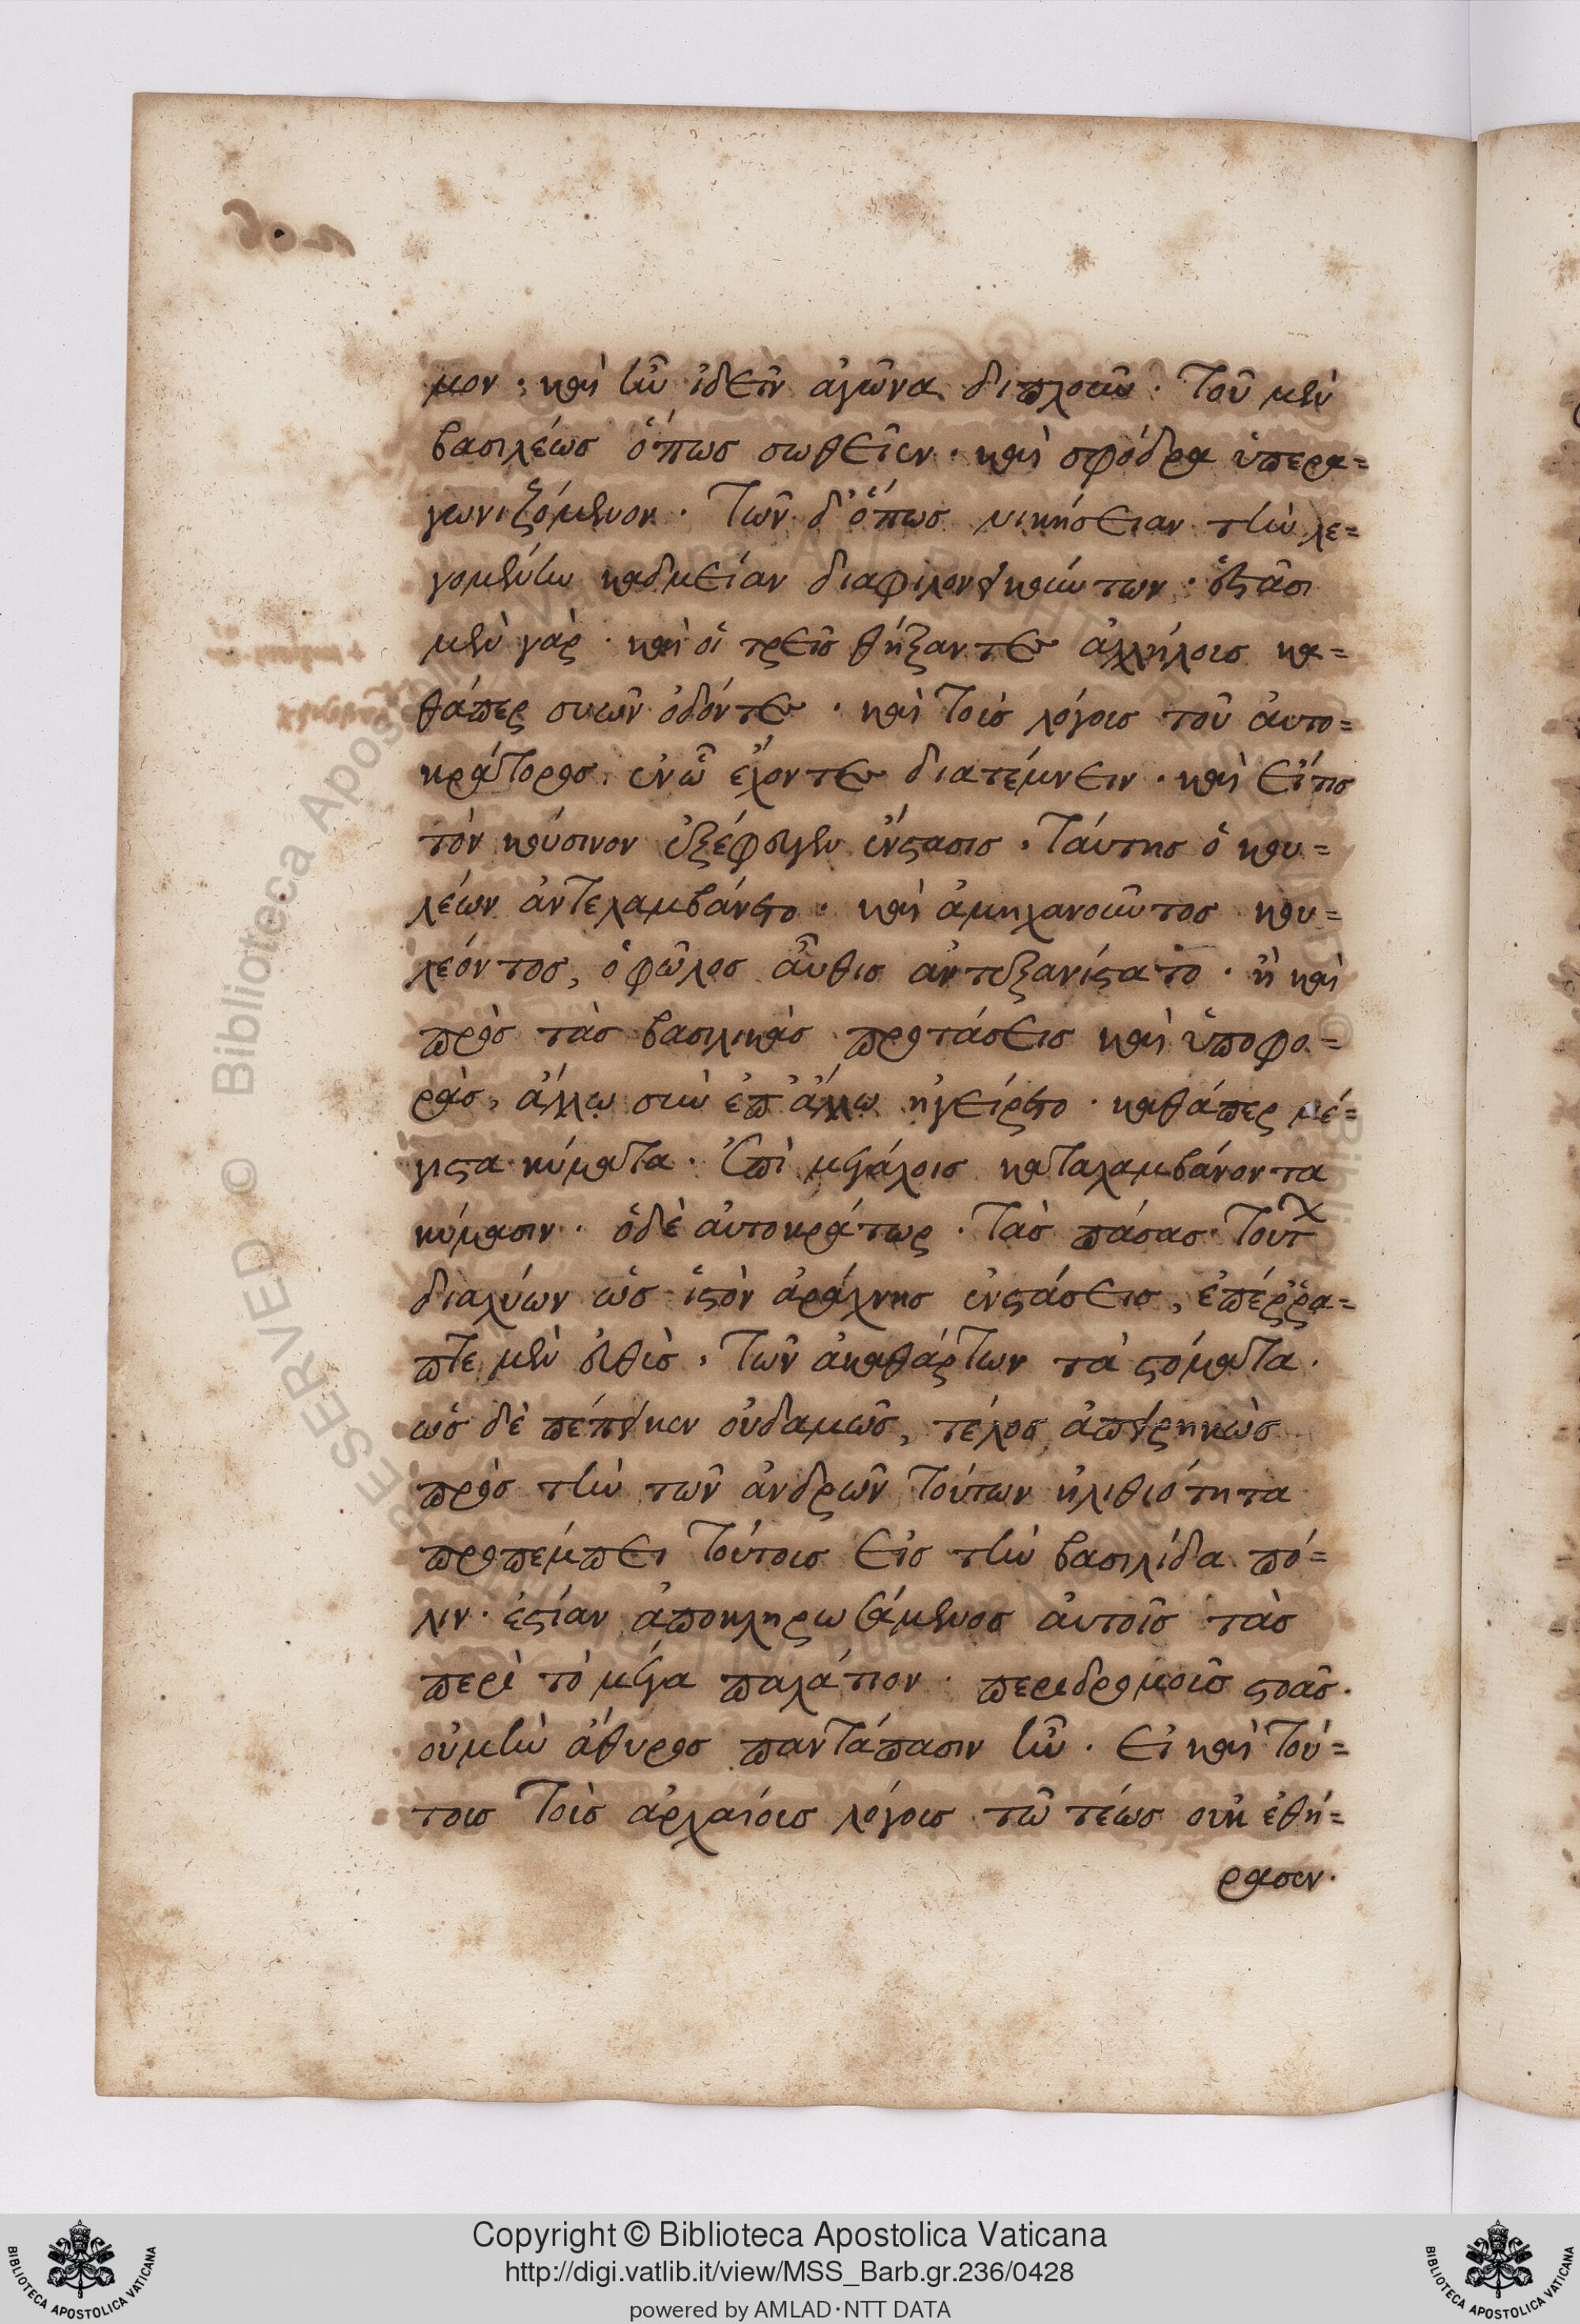 μον· καὶ ἦν ἰδεῖν ἀγῶνα διπλοῦν· τοῦ μὲν
βασιλέως ὅπως σωθεῖεν· καὶ σφόδρα ὑπερα=
γωνιζόμενον· τῶν δ' ὅπως νικήσειαν τὴν λε=
γομένην καδμείαν διαφιλονεικούντων· ἑστᾶσι
μὲν γὰρ· καὶ οἱ τρεῖς θήξαντες ἀλλήλοις κα=
θάπερ συῶν ὀδόντες· καὶ τοῖς λόγοις τοῦ αὐτο=
κράτορος ἐνῶ ἔχοντες διατέμνειν· καὶ εἴτις
τὸν κούσινον ἐξέφυγεν ἔνστασις· ταύτης ὁ κου=
λέων ἀντελαμβάνετο· καὶ ἀμηχανοῦντος κου=
λέοντος, ὁ φῶλος αὖθις ἀντεξανίστατο· ἢ καὶ
πρὸς τὰς βασιλικὰς προτάσεις καὶ ὑποφο=
ρὰς, ἄλλω σὺν ἐπ' ἄλλω ἠγείρετο· καθάπερ μέ=
γιστα κύματα· ἐπὶ μεγάλοις καταλαμβάνοντα
κύμασιν· ὁ δὲ αὐτοκράτωρ· τὰς πάσας τούτ
διαλύων ὡς ἱστὸν ἀράχνης ἐνστάσεις, ἐπέρρα=
πτε μὲν εὐθὺς· τῶν ἀκαθάρτων τὰ στόματα·
ὡς δὲ πέπεικεν οὐδαμῶς, τέλος ἀπειρηκὼς
πρὸς τὴν τῶν ἀνδρῶν τούτων ἠλιθιότητα
προπέμπει τούτοις εἰς τὴν βασιλίδα πό=
λιν· ἑστίαν ἀποκληρωσάμενος αὐτοῖς τὰς
περὶ τὸ μέγα παλάτιον· περιδρομοῖς στοᾶς·
οὐμὴν ἄθυρος παντάπασιν ἦν· εἰ καὶ τού=
τοις τοῖς ἀρχαίοις λόγοις τῶ τέως οὐκ ἐθή=
ρασεν·
Copyright © Biblioteca Apostolica Vaticana
http://digi.vatlib.it/view/MSS_Barb.gr.236/0428
powered by AMLAD·NTT DATA